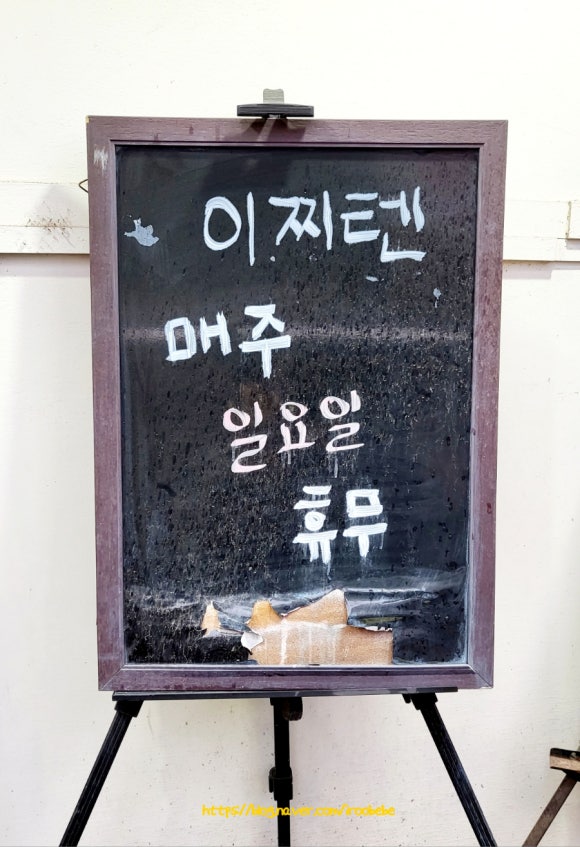 이찌텐
매주
일요일
휴무
https://blog.naver.com/iroobebe